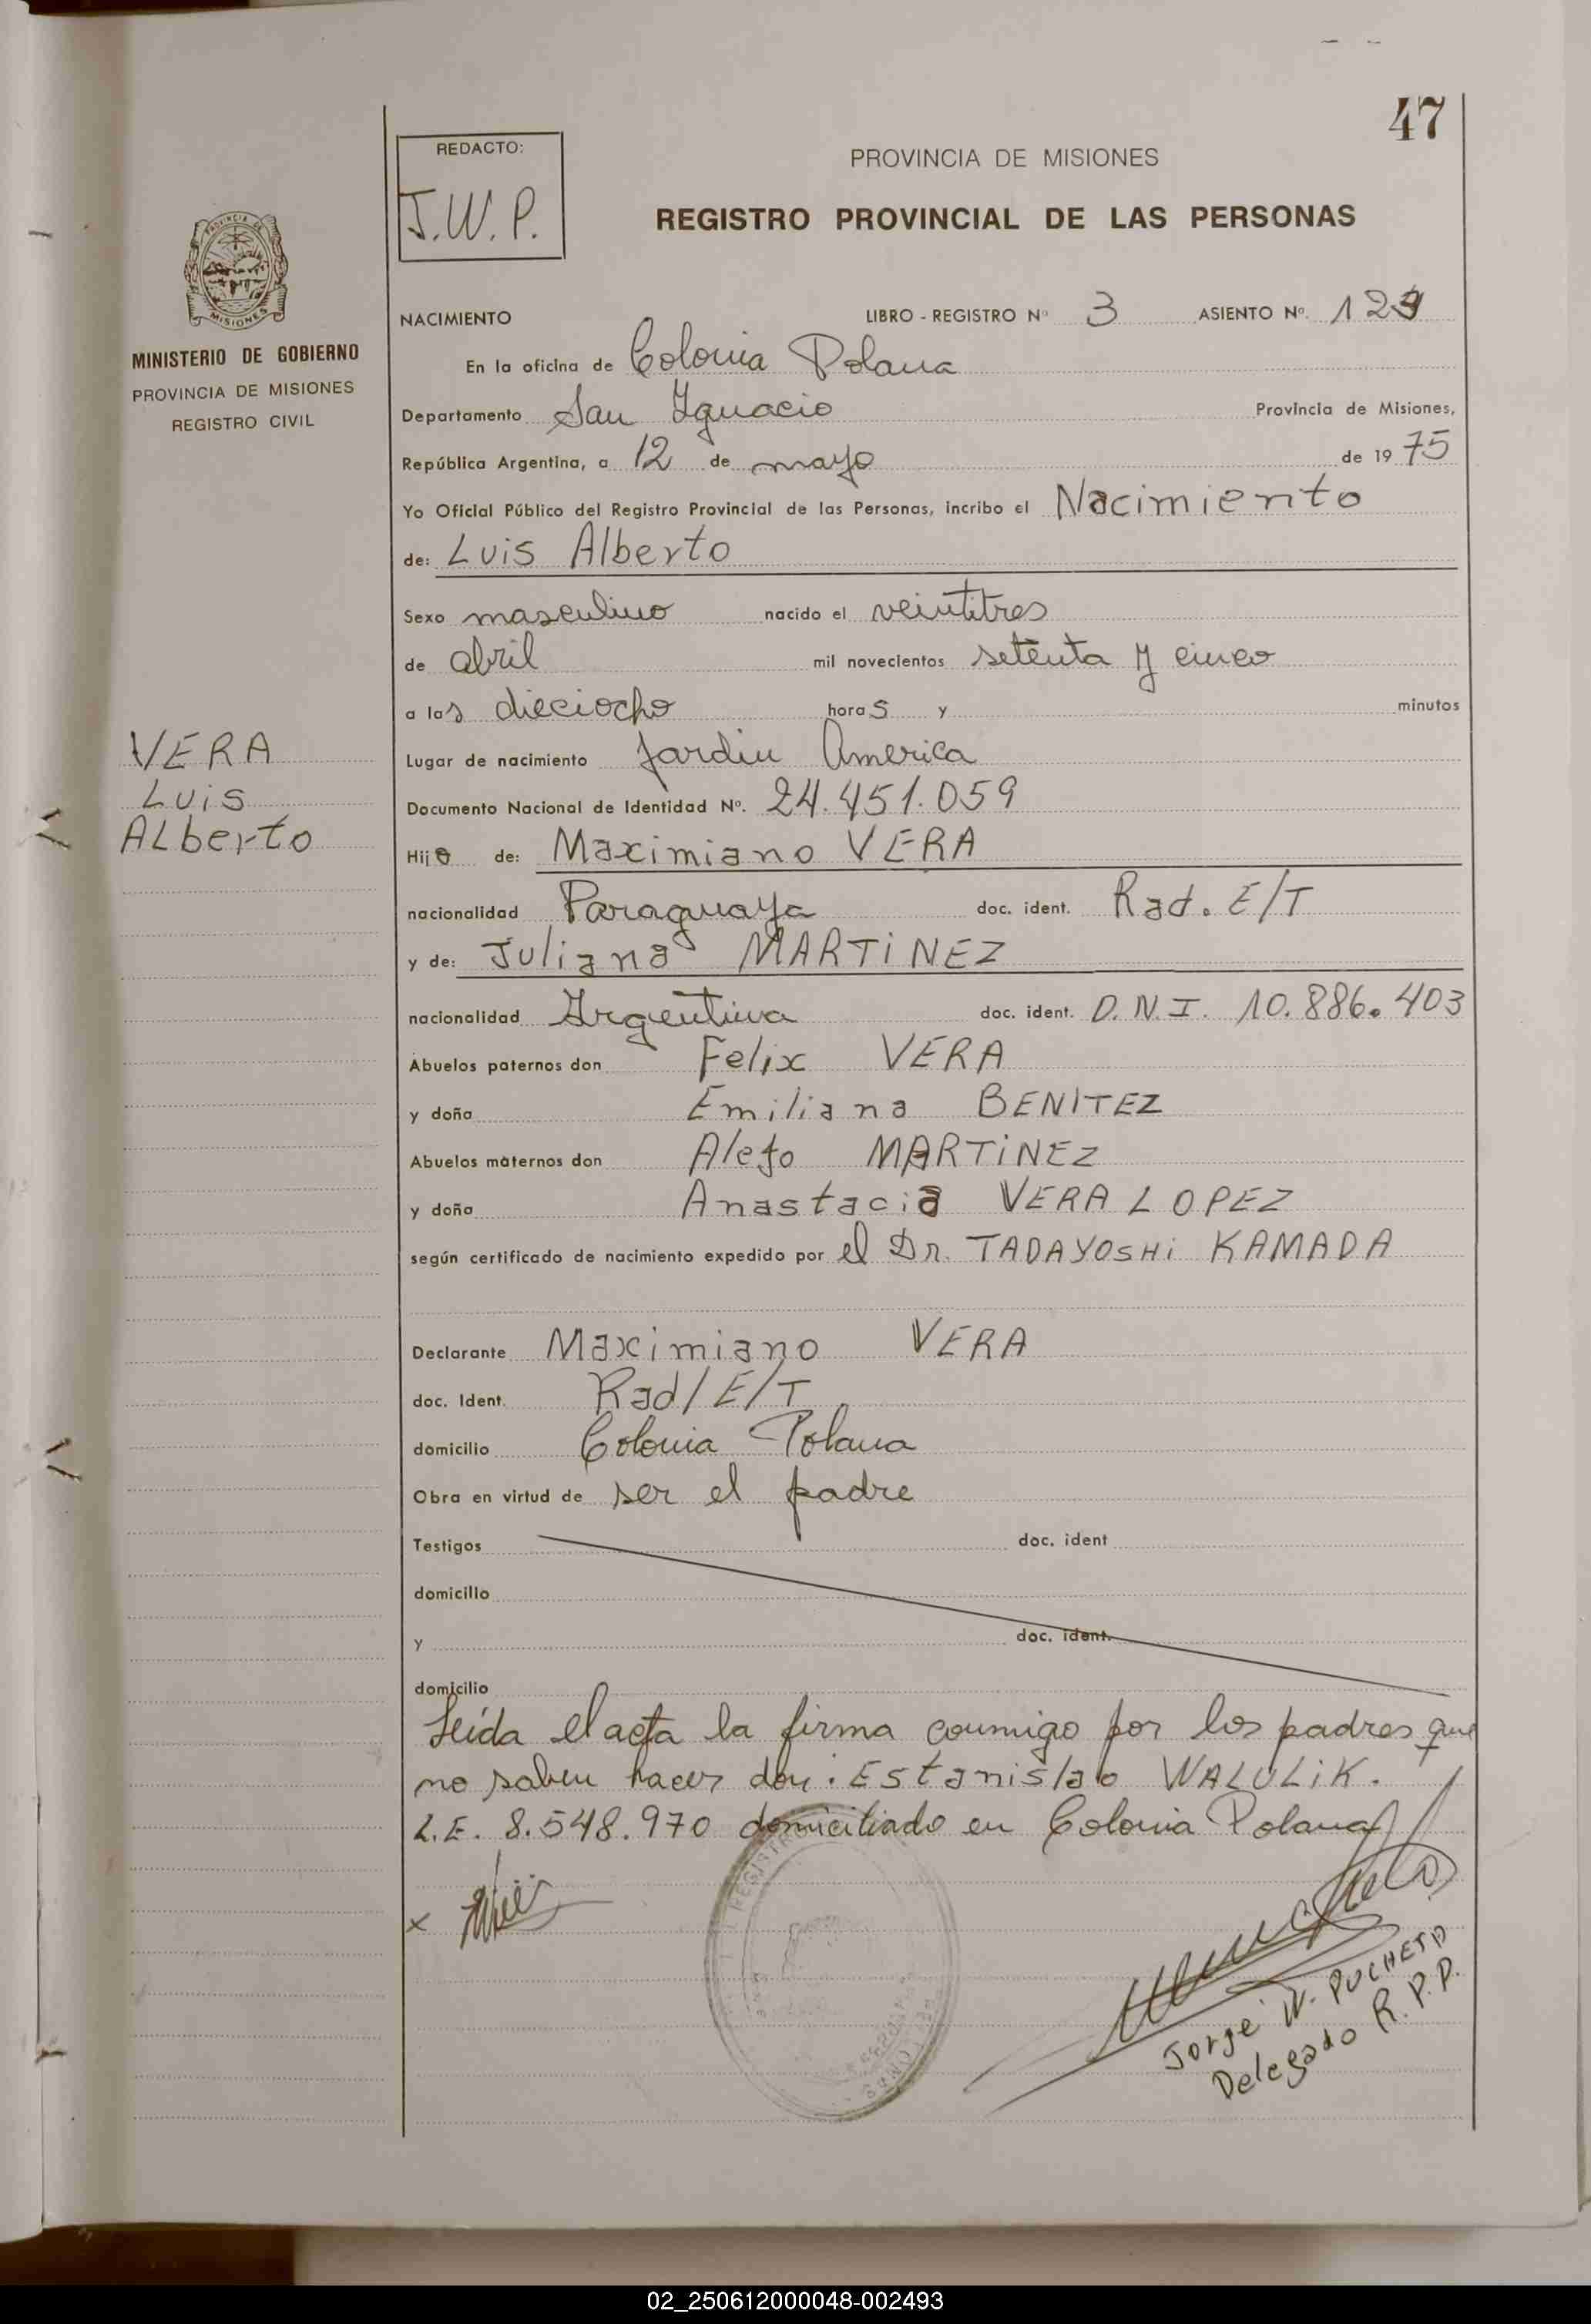 47
REDACTO:
J.W.P.
PROVINCIA DE MISIONES
REGISTRO PROVINCIAL DE LAS PERSONAS
PROVINCIA DE
MISIONES
MINISTERIO DE GOBIERNO
PROVINCIA DE MISIONES
REGISTRO CIVIL
NACIMIENTO LIBRO - REGISTRO Nº 3 ASIENTO Nº. 129
En la oficina de Colonia Polana
Departamento San Ygnacio Provincia de Misiones,
República Argentina, a 12 de mayo de 1975
Yo Oficial Público del Registro Provincial de las Personas, incribo el Nacimiento
de: Luis Alberto
Sexo masculino nacido el veintitres
de abril mil novecientos setenta y cinco
a las dieciocho horas y minutos
Lugar de nacimiento Jardin America
Documento Nacional de Identidad Nº. 24.451.059
VERA
Luis
ALberto
Hijo de: Maximiano VERA
nacionalidad Paraguaya doc. ident. Rad. E/T
y de: Juliana MARTINEZ
nacionalidad Argentina doc. ident. D.N.I. 10.886.403
Abuelos paternos don Felix VERA
y doña Emiliana BENITEZ
Abuelos maternos don Alejo MARTINEZ
y doña Anastacia VERA LOPEZ
según certificado de nacimiento expedido por el Dr. TADAYOSHi KAMADA
Declarante Maximiano VERA
doc. Ident. Rad/E/T
domicilio Colonia Polana
Obra en virtud de ser el padre
Testigos doc. ident
domicilio
y doc. ident.
domicilio
Leída el acta la firma conmigo por los padres que
no saben hacer don: Estanislao WALULIK.
L.E. 8.548.970 domiciliado en Colonia Polana
x
Jorge W. PUCHETA
Delegado R.P.P.
02_250612000048-002493